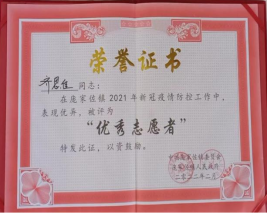 荣誉证书
同志：
在庞家佐镇2021年新冠疫情防控工作中，
表现优异，被评为
“优秀志愿者”
特发此证，以资鼓励。
二〇二二年二月